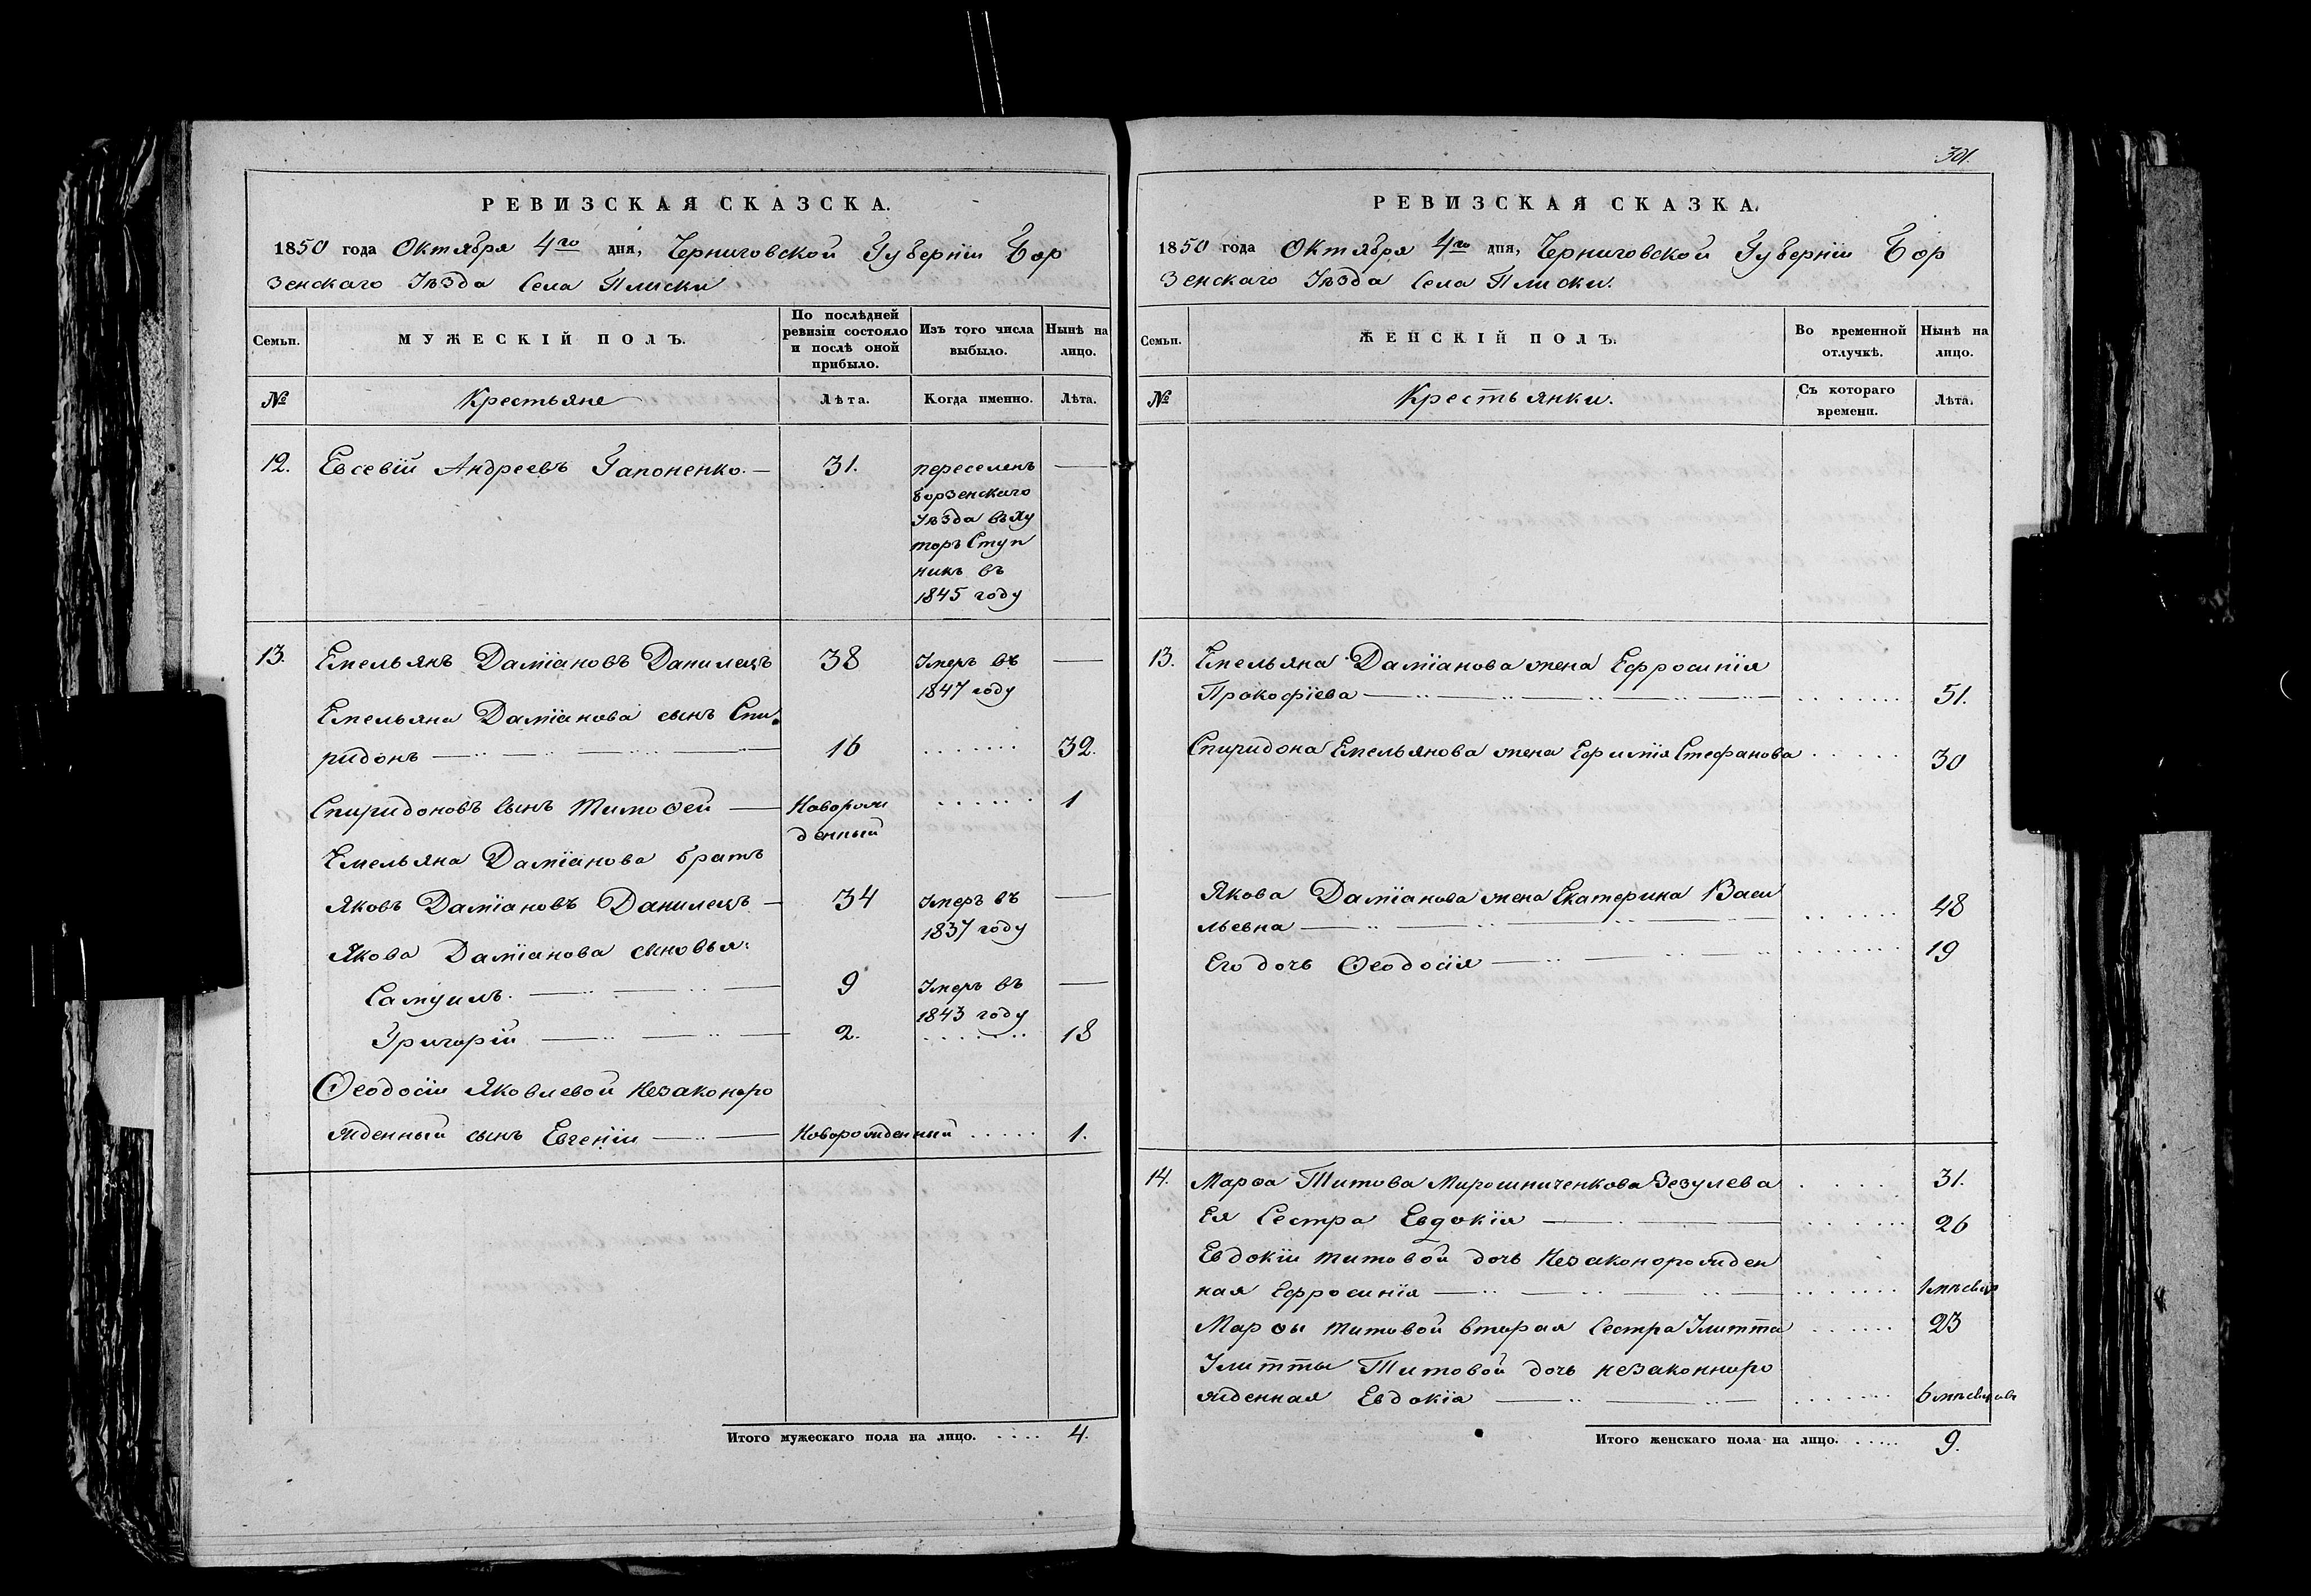 РЕВИЗСКАЯ СКАЗСКА.
1850 года Октября 4го дня, Черниговской Губерніи Бор
зенскаго Уѣзда Села Плиски
Семьи.
МУЖЕСКІЙ ПОЛЪ.
По послѣдней ревизіи состояло и послѣ оной прибыло.
Изъ того числа выбыло.
Нынѣ на лицо.
№
Крестьяне
Лѣта.
Когда именно.
Лѣта.
12. Евсевій Андреевъ Гапоненко. — 31. переселенъ —
борзенскаго
Уѣзда въ Ху
торъ Ступ
никъ въ
1845 году
13. Емельянъ Даміановъ 38 Умеръ въ —
1847 году
Емельяна Даміанова сынъ Спи
ридонъ — 16 ....... 32.
Спиридоновъ сынъ Тимоѳей — Новорож ...... 1
денный
Емельяна Даміанова братъ
Яковъ Даміановъ — 34 Умеръ въ —
1837 году
Якова Даміанова сыновья:
Самуилъ. — 9 Умеръ въ —
1843 году
Григорій — 2. ....... 18
Ѳеодосіи Яковлевой Незаконоро
жденный сынъ Евгеній — Новорожденный ..... 1.
Итого мужескаго пола на лицо. .... 4.
301.
РЕВИЗСКАЯ СКАЗКА.
1850 года Октября 4го дня, Черниговской Губерніи Бор
зенскаго Уѣзда Села Плиски.
Семьи.
ЖЕНСКІЙ ПОЛЪ.
Во временной отлучкѣ.
Нынѣ на лицо.
№
Крестьянки.
Съ котораго времени.
Лѣта.
13. Емельяна Даміанова жена Ефросинія
Прокофіева — ....... 51.
Спиридона Емельянова жена Ефимія Стефанова ..... 30
Якова Даміанова жена Екатерина Васи
льевна — ...... 48
Его дочь Ѳеодосія — ....... 19
14. Марѳа Титова Мирошниченкова Зезулева .... 31.
Ея Сестра Евдокія — ...... 26
Евдокіи Титовой дочь Незаконорожден
ная Ефросинія — .......
Марѳы Титовой вторая Сестра Улитта ...... 23
Улитты Титовой дочь незаконноро
жденная Евдокія — .......
Итого женскаго пола на лицо. ..... 9.